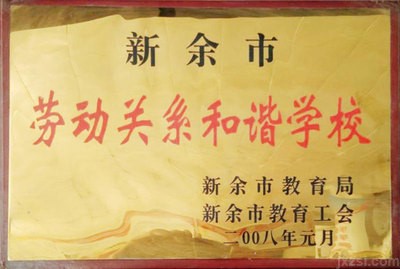 新余市
劳动关系和谐学校
新余市教育局
新余市教育工会
二00八年元月
jxzsl.com